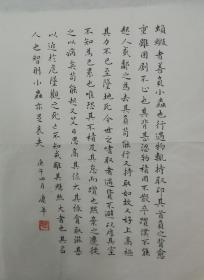 蝜蝂者善負小蟲也行遇物輒持取卬其首負之背愈
重雖困劇不止也其背甚澀物積因不散卒躓仆不能
起人或憐之為去其負苟能行又持取如故又好上高極
其力不已至墜地死今世之嗜取者遇貨不避以厚其室
不知為己累也唯恐其不積及其怠而躓也黜棄之遷徙
之以病矣苟能起又不艾日思高其位大其祿貪取滋甚
以近於危墜觀之死亡不知戒雖其魁然大者也其名
人也智則小蟲亦足哀夫 庚午四月